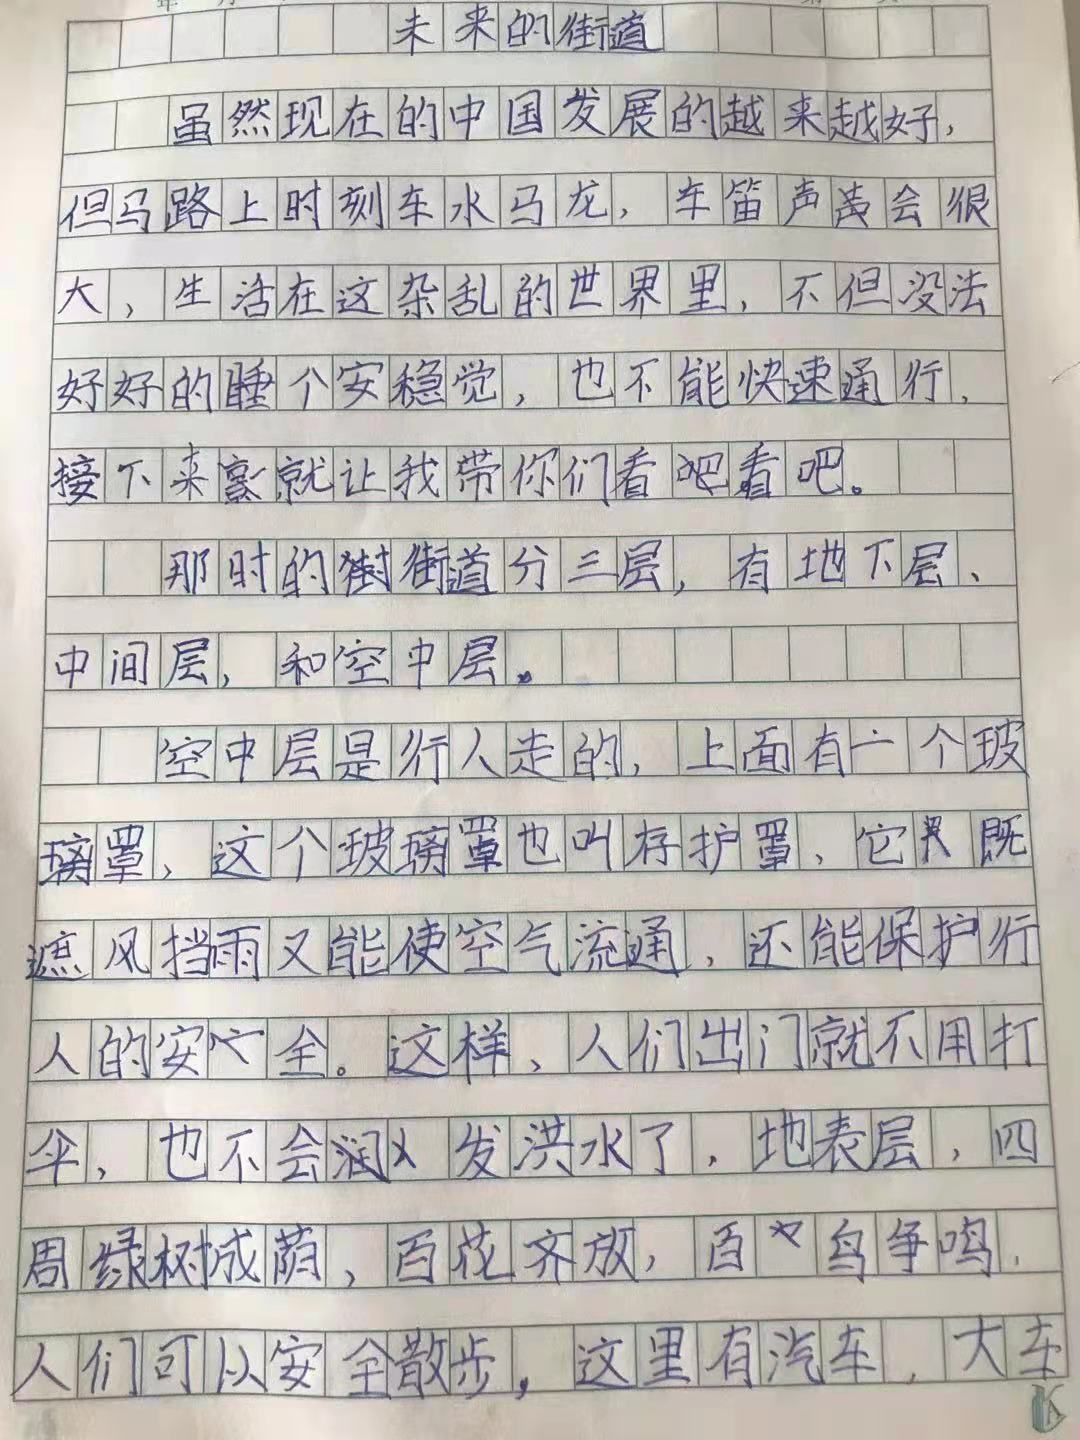 未来的街道
虽然现在的中国发展的越来越好，
但马路上时刻车水马龙，车笛声会很
大，生活在这杂乱的世界里，不但没法
好好的睡个安稳觉，也不能快速通行，
接下来就让我带你们看吧看吧。
那时的街道分三层，有地下层、
中间层，和空中层。
空中层是行人走的，上面有一个玻
璃罩，这个玻璃罩也叫存护罩，它既
遮风挡雨又能使空气流通，还能保护行
人的安全。这样，人们出门就不用打
伞，也不会发洪水了，地表层，四
周绿树成荫，百花齐放，百鸟争鸣，
人们可以安全散步，这里有汽车，大车